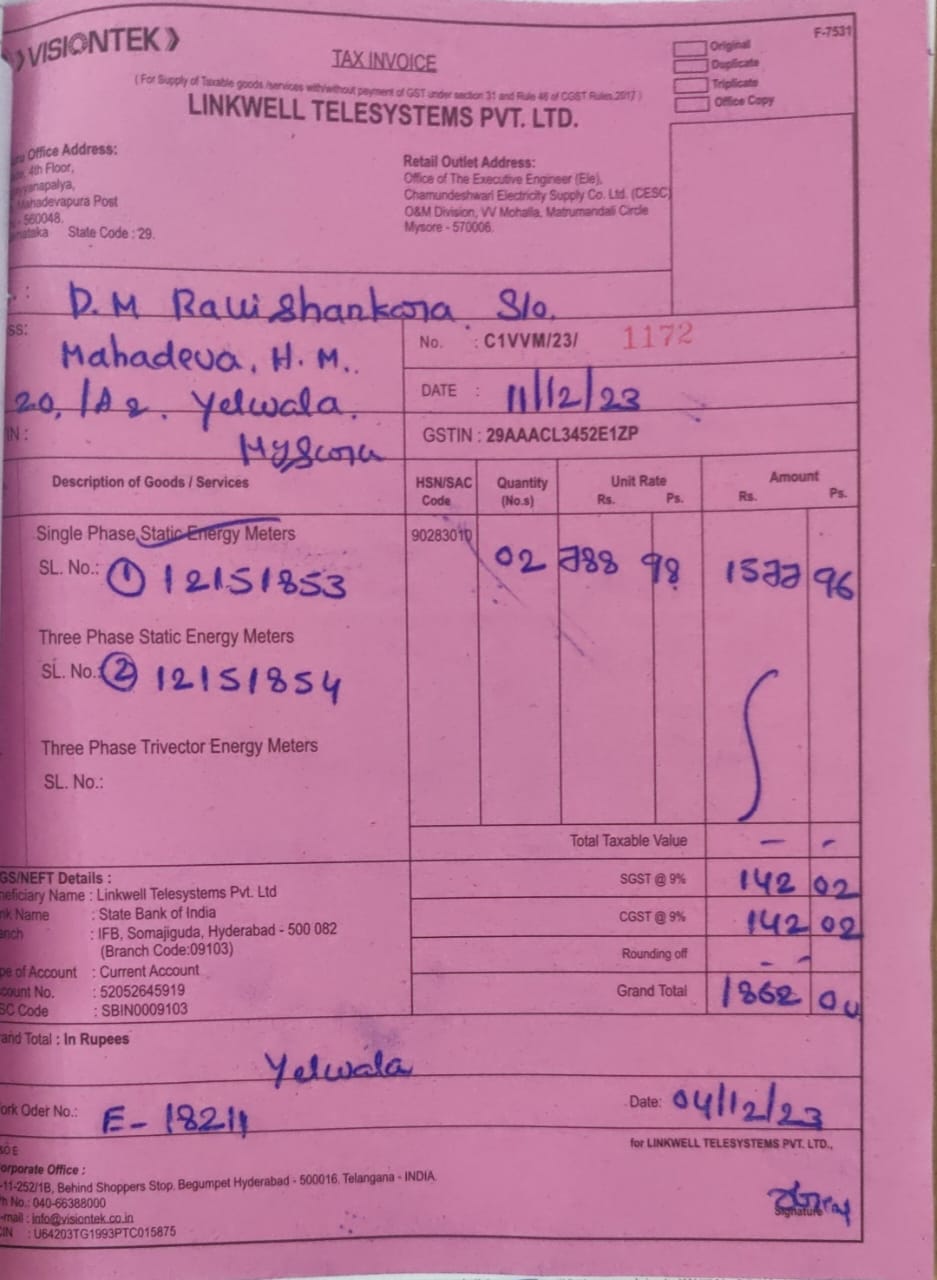 VISIONTEK
F-7531
TAX INVOICE
Original
Duplicate
Triplicate
Office Copy
(For Supply of Taxable goods /services with/without payment of GST under section 31 and Rule 46 of CGST Rules.2017)
LINKWELL TELESYSTEMS PVT. LTD.
Office Address:
4th Floor,
Mahadevapura Post
- 560048.
State Code : 29.
Retail Outlet Address:
Office of The Executive Engineer (Ele),
Chamundeshwari Electricity Supply Co. Ltd. (CESC)
O&M Division, VV Mohalla, Matrumandali Circle
Mysore - 570006.
D.M Ravi Shankara S/o.
Mahadeva, H.M..
20,/A2. Yelwala.
Mysore
No. : C1VVM/23/ 1172
DATE : 11/12/23
GSTIN : 29AAACL3452E1ZP
Description of Goods / Services HSN/SAC Code Quantity (No.s) Unit Rate Rs. Ps. Amount Rs. Ps.
Single Phase Static Energy Meters 90283010 02 788 98 1577 96
SL. No.: ① 12151853
Three Phase Static Energy Meters
SL. No.: ② 12151854
Three Phase Trivector Energy Meters
SL. No.:
Total Taxable Value - -
SGST @ 9% 142 02
CGST @ 9% 142 02
Rounding off - -
Grand Total 1862 00
GS/NEFT Details :
neficiary Name : Linkwell Telesystems Pvt. Ltd
nk Name : State Bank of India
anch : IFB, Somajiguda, Hyderabad - 500 082
(Branch Code:09103)
pe of Account : Current Account
count No. : 52052645919
SC Code : SBIN0009103
and Total : In Rupees
Yelwala
ork Oder No.: E-18211
Date: 04/12/23
for LINKWELL TELESYSTEMS PVT. LTD.,
orporate Office :
-11-252/1B, Behind Shoppers Stop, Begumpet Hyderabad - 500016, Telangana - INDIA.
h No.: 040-66388000
-mail : info@visiontek.co.in
IN : U64203TG1993PTC015875
Signature